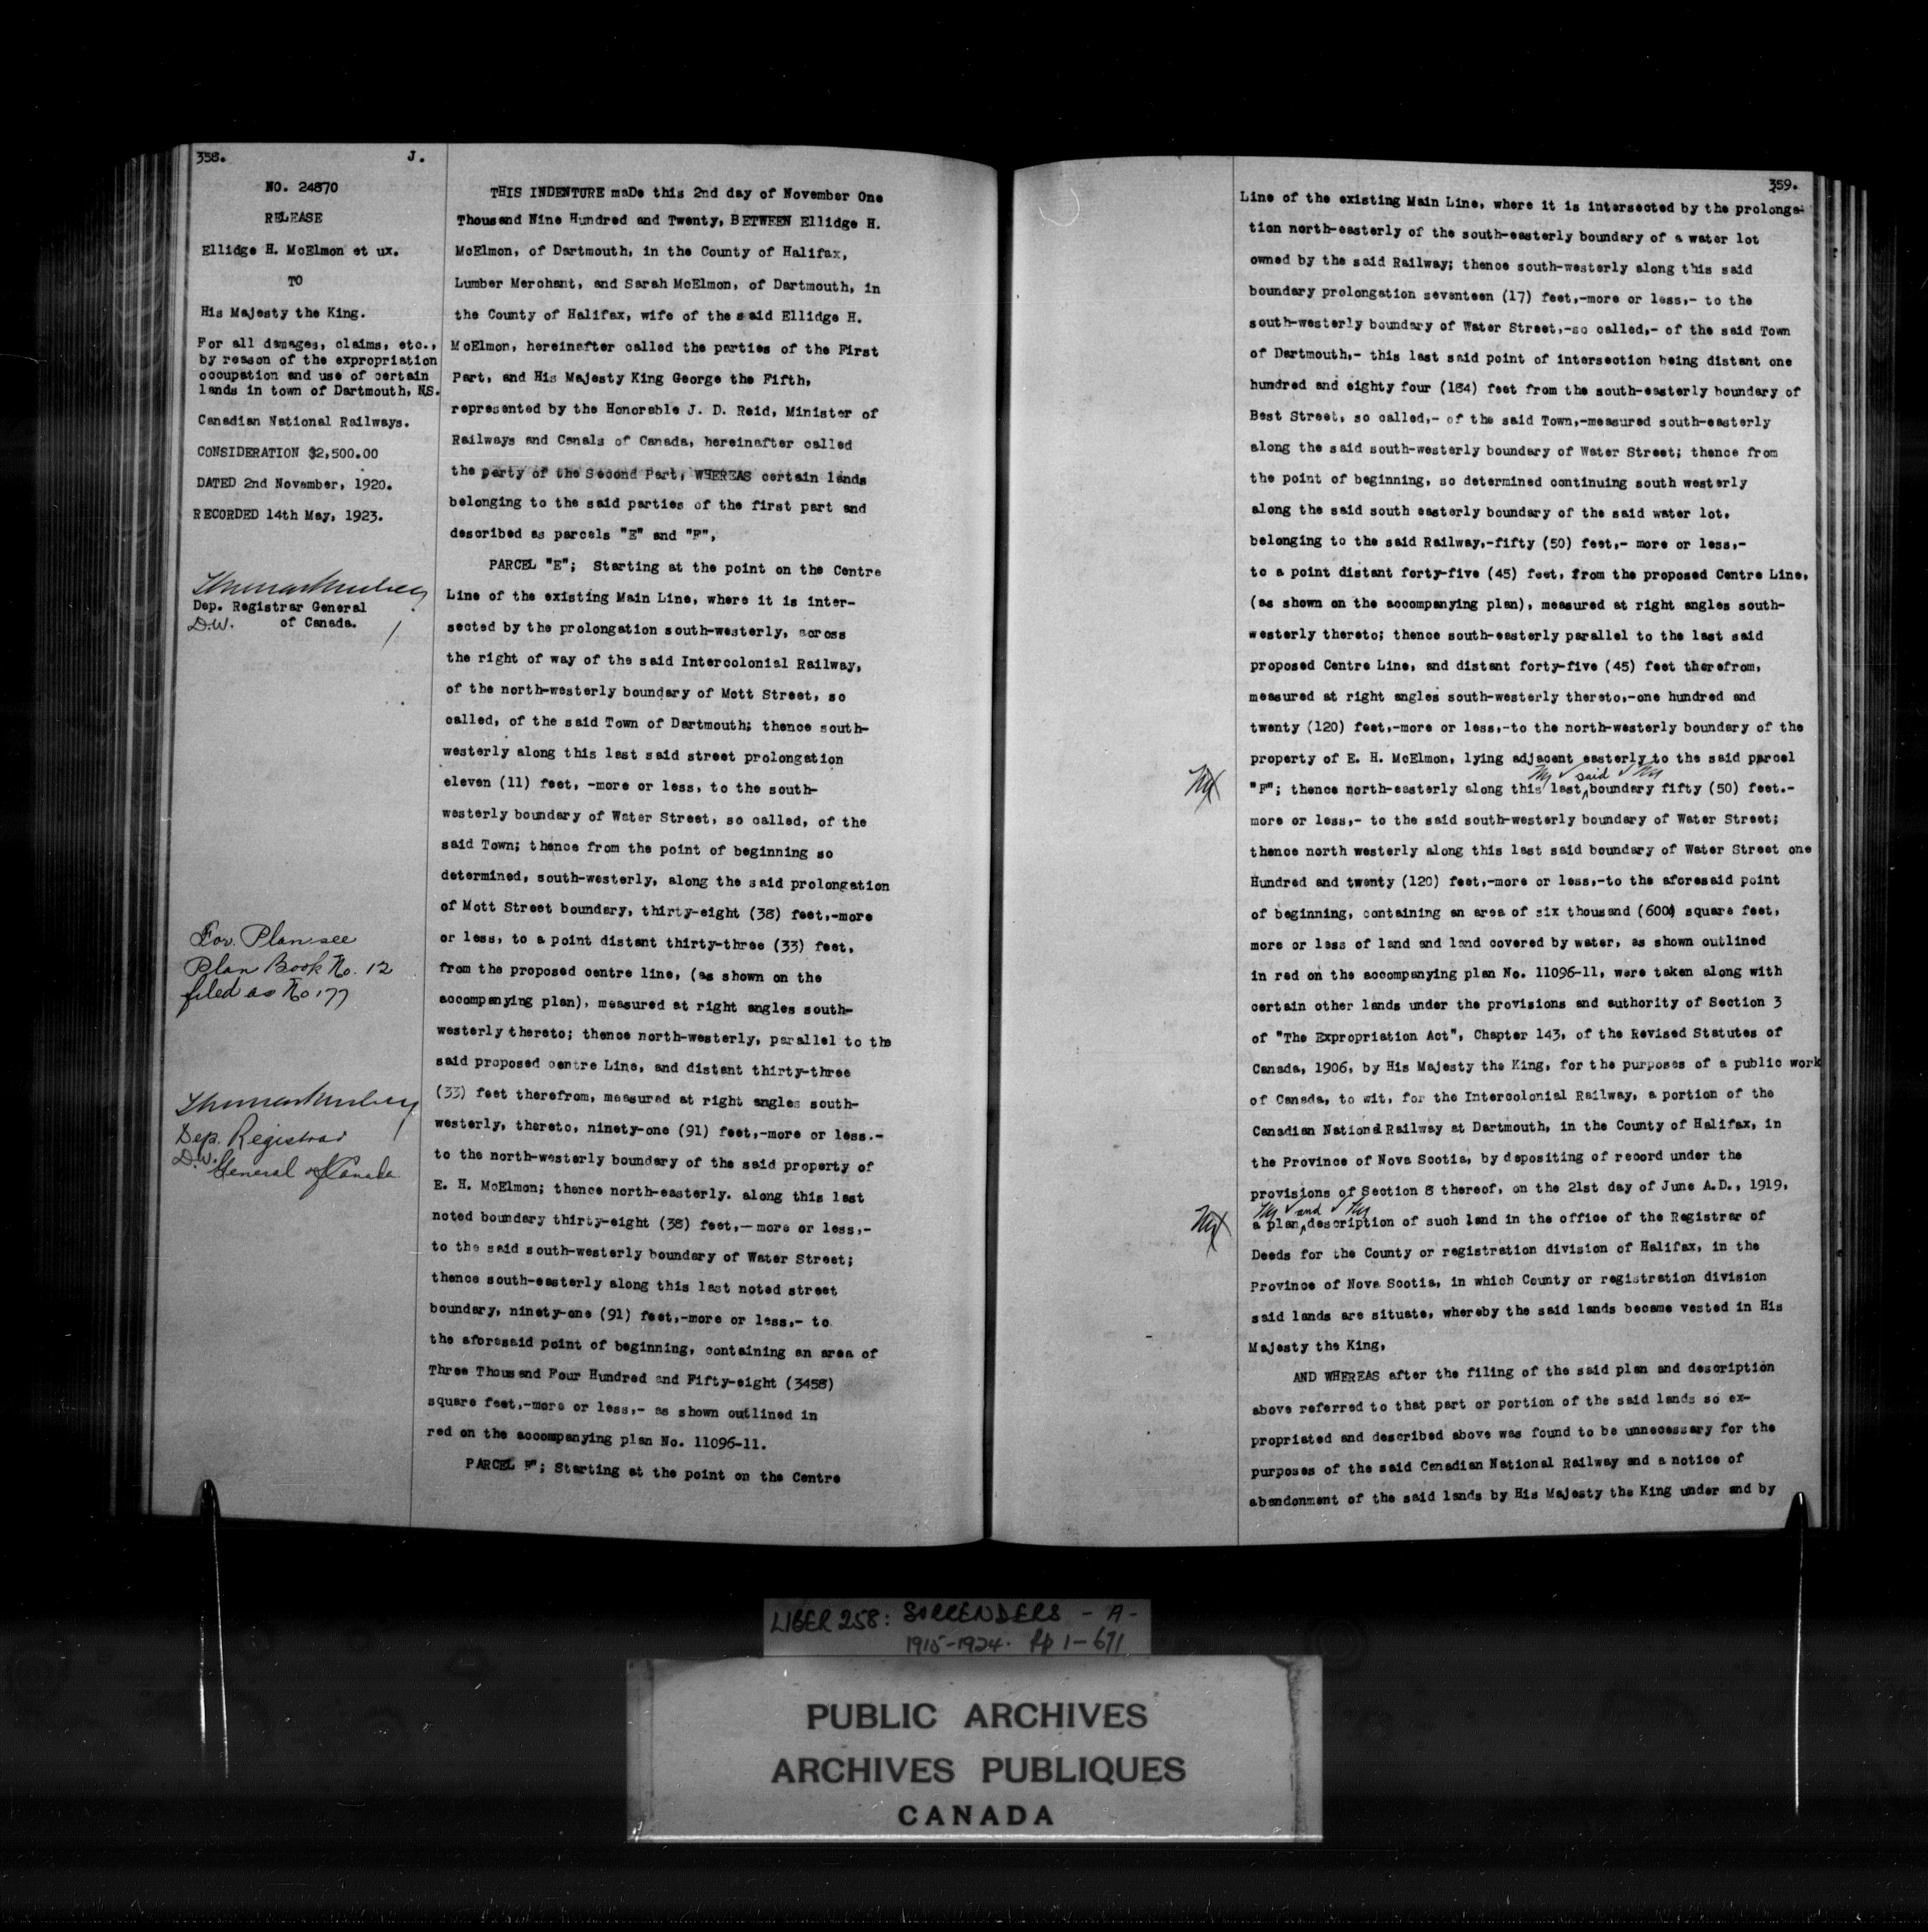 358.
J.
NO. 24870
RELEASE
Ellidge H. McElmon et ux.
TO
His Majesty the King.
For all damages, claims, etc.,
by reason of the expropriation
occupation and use of certain
lands in town of Dartmouth, N.S.
Canadian National Railways.
CONSIDERATION $2,500.00
DATED 2nd November, 1920.
RECORDED 14th May, 1923.
Dep. Registrar General
D.W. of Canada.
For Plan see
Plan Book No. 12
filed as No 177
Dep. Registrar
D.W. General of Canada
THIS INDENTURE maDe this 2nd day of November One
Thousand Nine Hundred and Twenty, BETWEEN Ellidge H.
McElmon, of Dartmouth, in the County of Halifax,
Lumber Merchant, and Sarah McElmon, of Dartmouth, in
the County of Halifax, wife of the said Ellidge H.
McElmon, hereinafter called the parties of the First
Part, and His Majesty King George the Fifth,
represented by the Honorable J. D. Reid, Minister of
Railways and Canals of Canada, hereinafter called
the party of the Second Part, WHEREAS certain lands
belonging to the said parties of the first part and
described as parcels "E" and "F",
PARCEL "E"; Starting at the point on the Centre
Line of the existing Main Line, where it is inter-
sected by the prolongation south-westerly, across
the right of way of the said Intercolonial Railway,
of the north-westerly boundary of Mott Street, so
called, of the said Town of Dartmouth; thence south-
westerly along this last said street prolongation
eleven (11) feet, -more or less, to the south-
westerly boundary of Water Street, so called, of the
said Town; thence from the point of beginning so
determined, south-westerly, along the said prolongation
of Mott Street boundary, thirty-eight (38) feet,-more
or less, to a point distant thirty-three (33) feet,
from the proposed centre line, (as shown on the
accompanying plan), measured at right angles south-
westerly thereto; thence north-westerly, parallel to the
said proposed centre Line, and distant thirty-three
(33) feet therefrom, measured at right angles south-
westerly, thereto, ninety-one (91) feet,-more or less.-
to the north-westerly boundary of the said property of
E. H. McElmon; thence north-easterly. along this last
noted boundary thirty-eight (38) feet,—more or less,-
to the said south-westerly boundary of Water Street;
thence south-easterly along this last noted street
boundary, ninety-one (91) feet,-more or less,- to
the aforesaid point of beginning, containing an area of
Three Thousand Four Hundred and Fifty-eight (3458)
square feet,-more or less,- as shown outlined in
red on the accompanying plan No. 11096-11.
PARCEL F"; Starting at the point on the Centre
359.
Line of the existing Main Line, where it is intersected by the prolonga-
tion north-easterly of the south-easterly boundary of a water lot
owned by the said Railway; thence south-westerly along this said
boundary prolongation seventeen (17) feet,-more or less,- to the
south-westerly boundary of Water Street,-so called,- of the said Town
of Dartmouth,- this last said point of intersection being distant one
hundred and eighty four (184) feet from the south-easterly boundary of
Best Street, so called,- of the said Town,-measured south-easterly
along the said south-westerly boundary of Water Street; thence from
the point of beginning, so determined continuing south westerly
along the said south easterly boundary of the said water lot,
belonging to the said Railway,-fifty (50) feet,- more or less,-
to a point distant forty-five (45) feet, from the proposed Centre Line,
(as shown on the accompanying plan), measured at right angles south-
westerly thereto; thence south-easterly parallel to the last said
proposed Centre Line, and distant forty-five (45) feet therefrom,
measured at right angles south-westerly thereto,-one hundred and
twenty (120) feet,-more or less,-to the north-westerly boundary of the
property of E. H. McElmon, lying adjacent easterly to the said parcel
said
"F"; thence north-easterly along this last boundary fifty (50) feet.-
more or less,- to the said south-westerly boundary of Water Street;
thence north westerly along this last said boundary of Water Street one
Hundred and twenty (120) feet,-more or less,-to the aforesaid point
of beginning, containing an area of six thousand (6000) square feet,
more or less of land and land covered by water, as shown outlined
in red on the accompanying plan No. 11096-11, were taken along with
certain other lands under the provisions and authority of Section 3
of "The Expropriation Act", Chapter 143, of the Revised Statutes of
Canada, 1906, by His Majesty the King, for the purposes of a public work
of Canada, to wit, for the Intercolonial Railway, a portion of the
Canadian National Railway at Dartmouth, in the County of Halifax, in
the Province of Nova Scotia, by depositing of record under the
provisions of Section 8 thereof, on the 21st day of June A.D., 1919,
and
a plan description of such land in the office of the Registrar of
Deeds for the County or registration division of Halifax, in the
Province of Nova Scotia, in which County or registration division
said lands are situate, whereby the said lands became vested in His
Majesty the King,
AND WHEREAS after the filing of the said plan and description
above referred to that part or portion of the said lands so ex-
propriated and described above was found to be unnecessary for the
purposes of the said Canadian National Railway and a notice of
abandonment of the said lands by His Majesty the King under and by
LIBER 258: SURRENDERS - A -
1915-1924. pp 1-671
PUBLIC ARCHIVES
ARCHIVES PUBLIQUES
CANADA